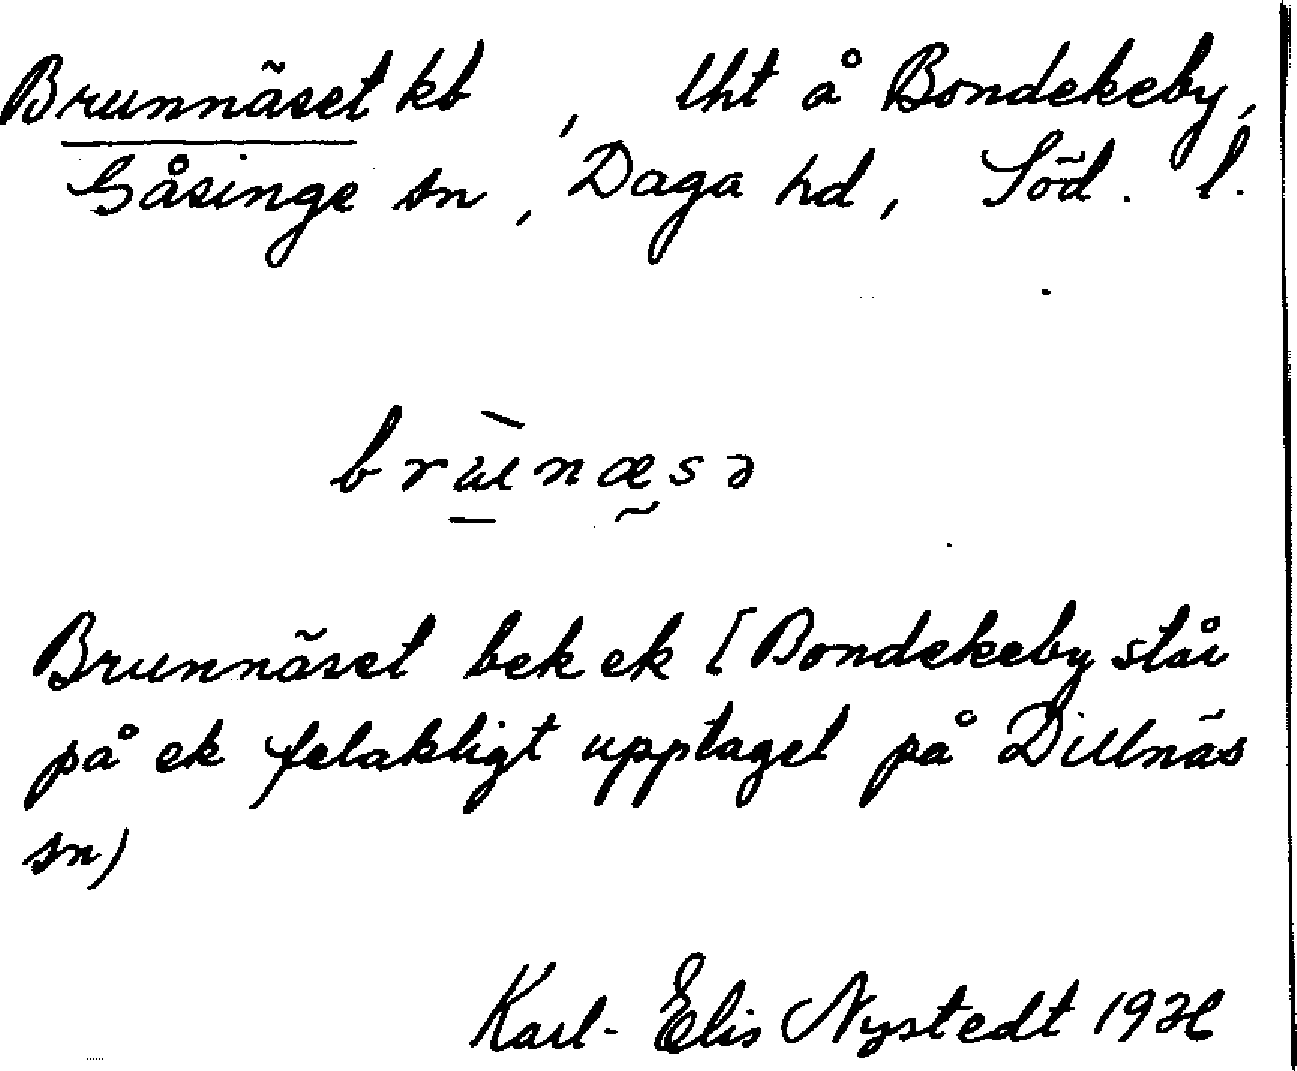 Brunnäset kb, lht å Bondekeby,
Gåsinge sn, Daga hd, Söd. l.
brùnæsə
Brunnäset bek ek [Bondekeby står
på ek felaktigt upptaget på Dillnäs
sn)
Karl-Elis Nystedt 1936